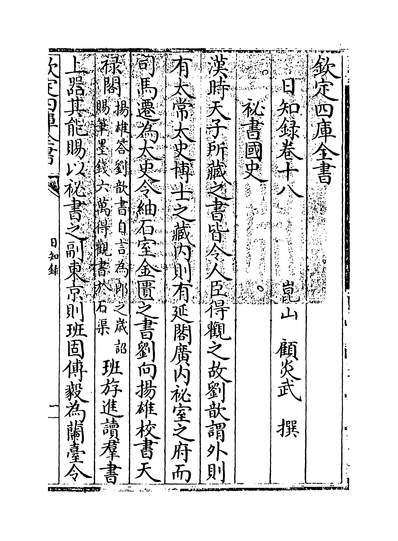 欽定四庫全書
日知錄卷十八
崑山 顧炎武 撰
祕書國史
漢時天子所藏之書皆令人臣得觀之故劉歆謂外則
有太常太史博士之藏内則有延閣廣内祕室之府而
司馬遷為太史令紬石室金匱之書劉向揚雄校書天
禄閣揚雄答劉歆書自言為郎之歲詔賜筆墨錢六萬得觀書於石渠班斿進讀羣書
上器其能賜以祕書之副東京則班固傅毅為蘭臺令
日知錄
一